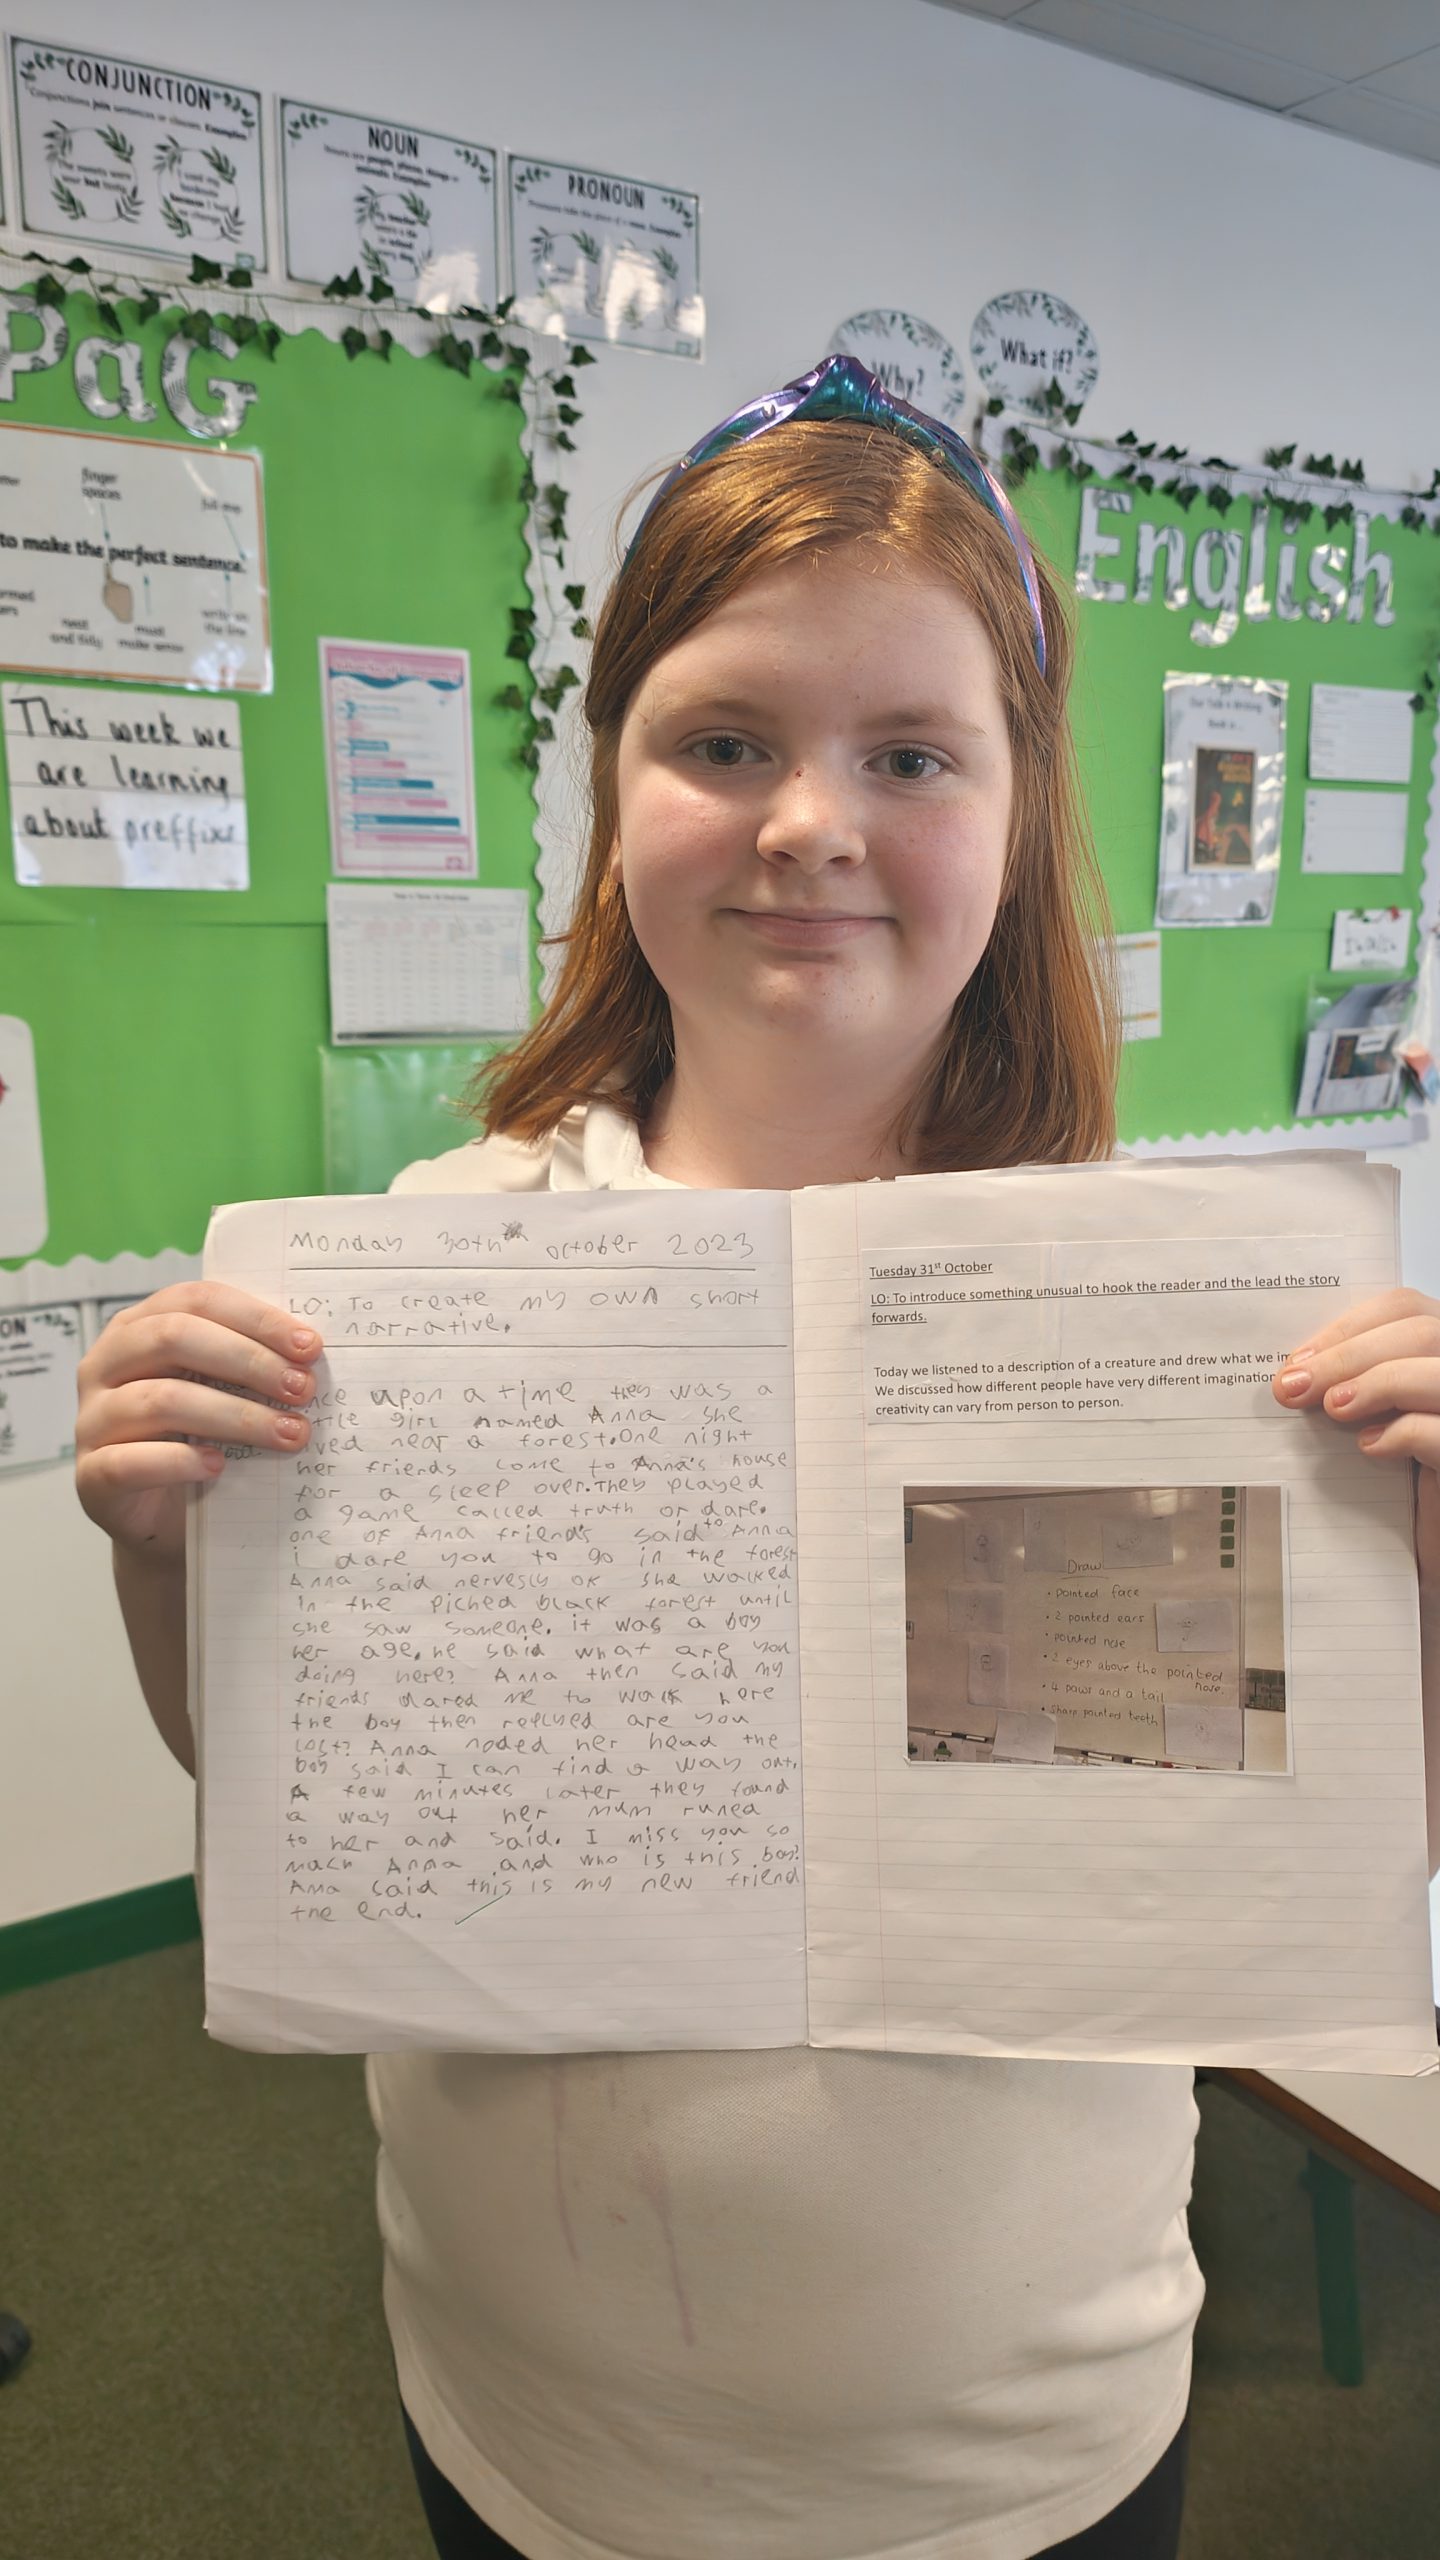 CONJUNCTION
Conjunctions join sentences or clauses. Examples
NOUN
PRONOUN
Why?
What if?
PaG
finger
spaces
full stop
to make the perfect sentence.
neat
and tidy
must
make sense
write on
the line
This week we
are learning
about preffixs
English
ON
Monday 30thth october 2023
LO: To create my own short
narrative.
nce upon a time they was a
ttle girl named Anna she
ived near a forest.One night
her friends come to Anna's house
for a sleep over.They played
a game called truth or dare.
one of Anna friends said to Anna
i dare you to go in the forest
Anna said nervesly ok she walked
in the piched black forest until
she saw someone. it was a boy
her age.he said what are you
doing here? Anna then said my
friends dared me to walk here
the boy then are you
lost? Anna noded her head the
boy said I can find a way out.
A few minutes later they found
a way out her mum runed
to her and said. I miss you so
mach Anna and who is this boy?
Anna said this is my new friend
the end.
Tuesday 31st October
LO: To introduce something unusual to hook the reader and the lead the story
forwards.
Today we listened to a description of a creature and drew what we im
We discussed how different people have very different imagination
creativity can vary from person to person.
Draw
• pointed face
• 2 pointed ears
• pointed nose
• 2 eyes above the pointed
nose.
• 4 paws and a tail
• sharp pointed teeth